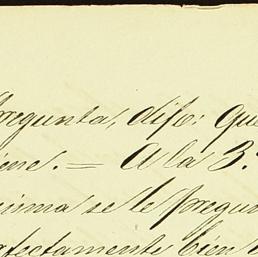 pregunta, dijo: que
iene. = A la 3.ª
isma se le pregun
erfectamente bien